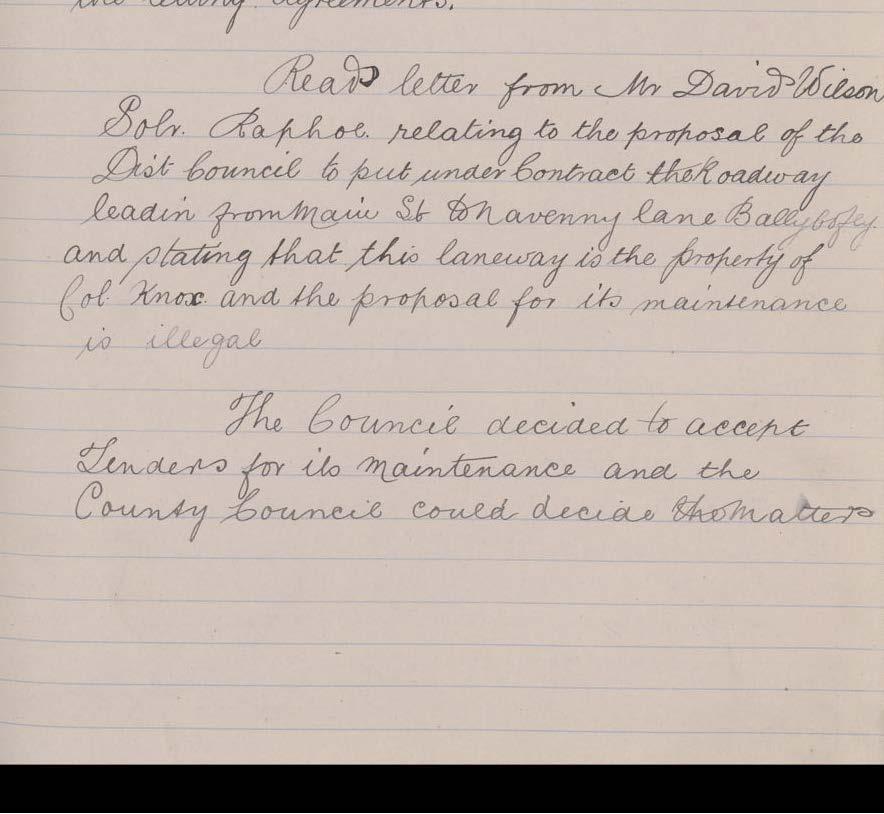 the letting agreements.
Read letter from Mr David Wilson
Solr. Raphoe. relating to the proposal of the
Dist Council to put under Contract the Roadway
leadin from Main St to Navenny lane Ballybofey.
and stating that this laneway is the property of
Col. Knox and the proposal for its maintenance
is illegal
The Council decided to accept
Tenders for its maintenance and the
County Council could decide the Matter